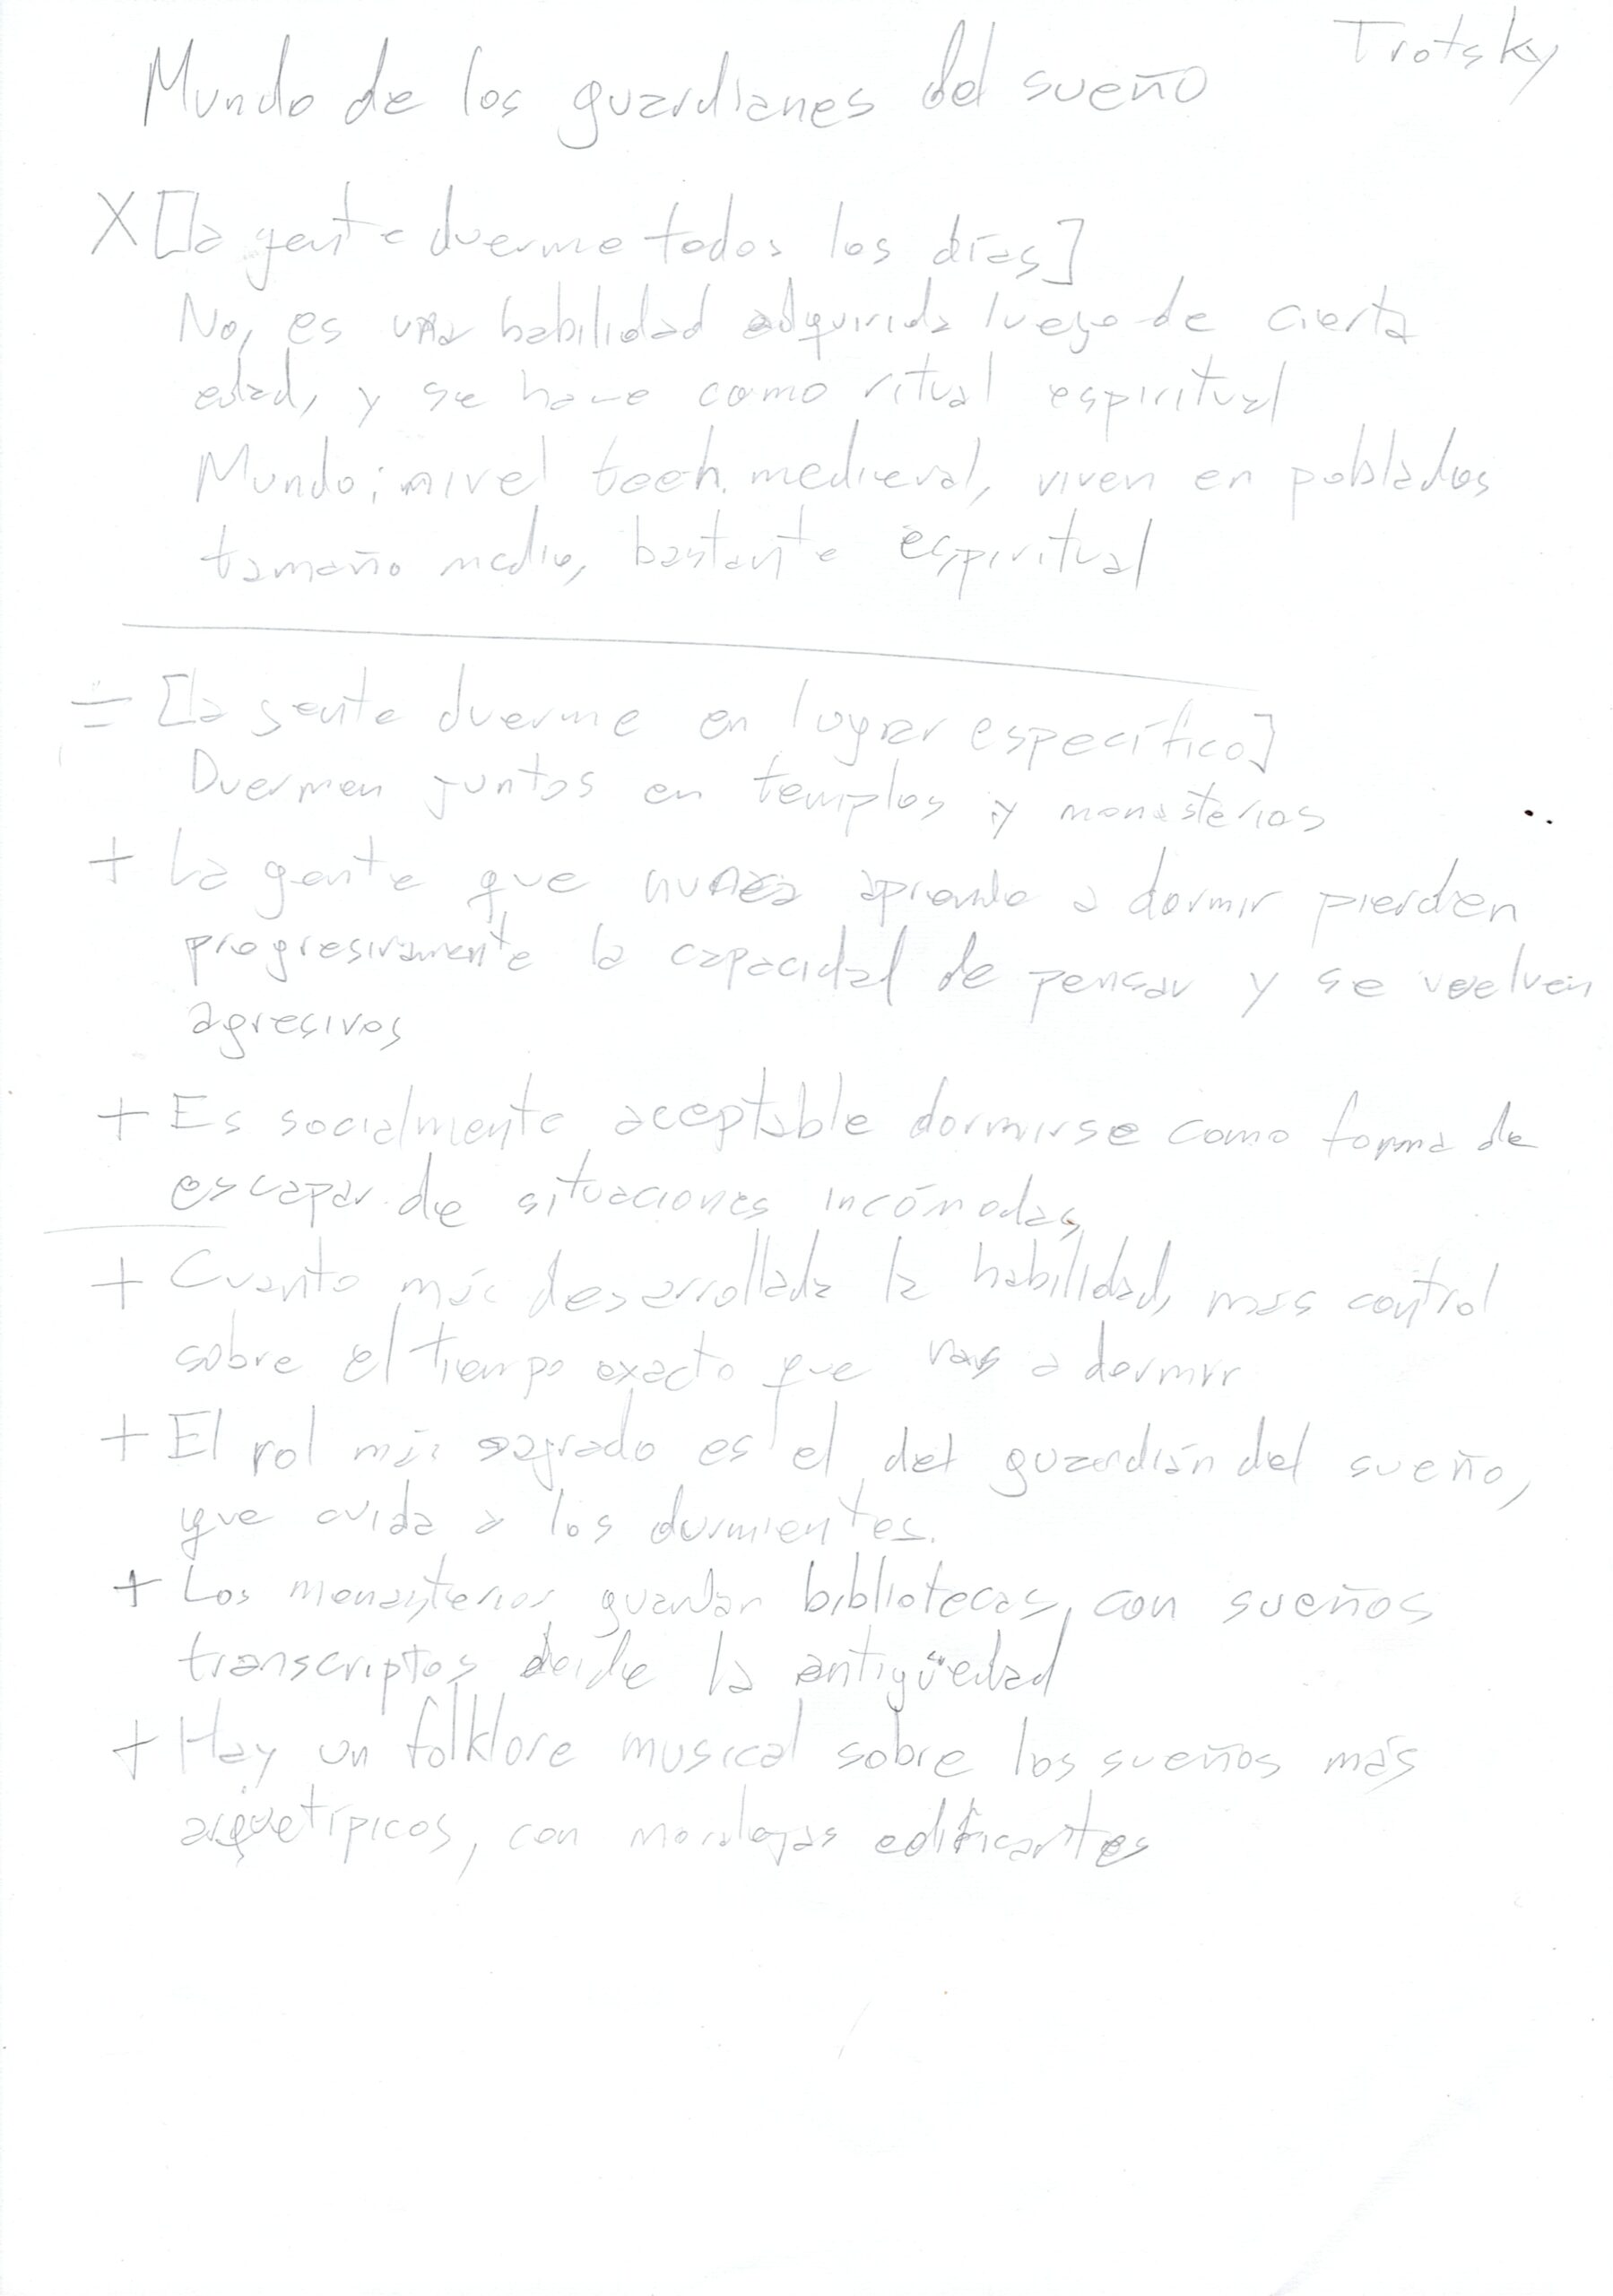 Trotsky
Mundo de los guardianes del sueño
X [la gente duerme todos los días]
No, es una habilidad adquirida luego de cierta
edad, y se hace como ritual espiritual
Mundo: nivel tech. medieval, viven en poblados
tamaño medio, bastante espiritual
= [la gente duerme en lugar específico]
Duermen juntos en templos y monasterios
+ La gente que nunca aprende a dormir pierden
progresivamente la capacidad de pensar y se vuelven
agresivos
+ Es socialmente aceptable dormirse como forma de
escapar de situaciones incómodas
+ Cuanto más desarrollada la habilidad, más control
sobre el tiempo exacto que vas a dormir
+ El rol más sagrado es el del guardián del sueño,
que cuida a los durmientes.
+ Los monasterios guardan bibliotecas, con sueños
transcriptos desde la antigüedad
+ Hay un folklore musical sobre los sueños más
arquetípicos, con moralejas edificantes